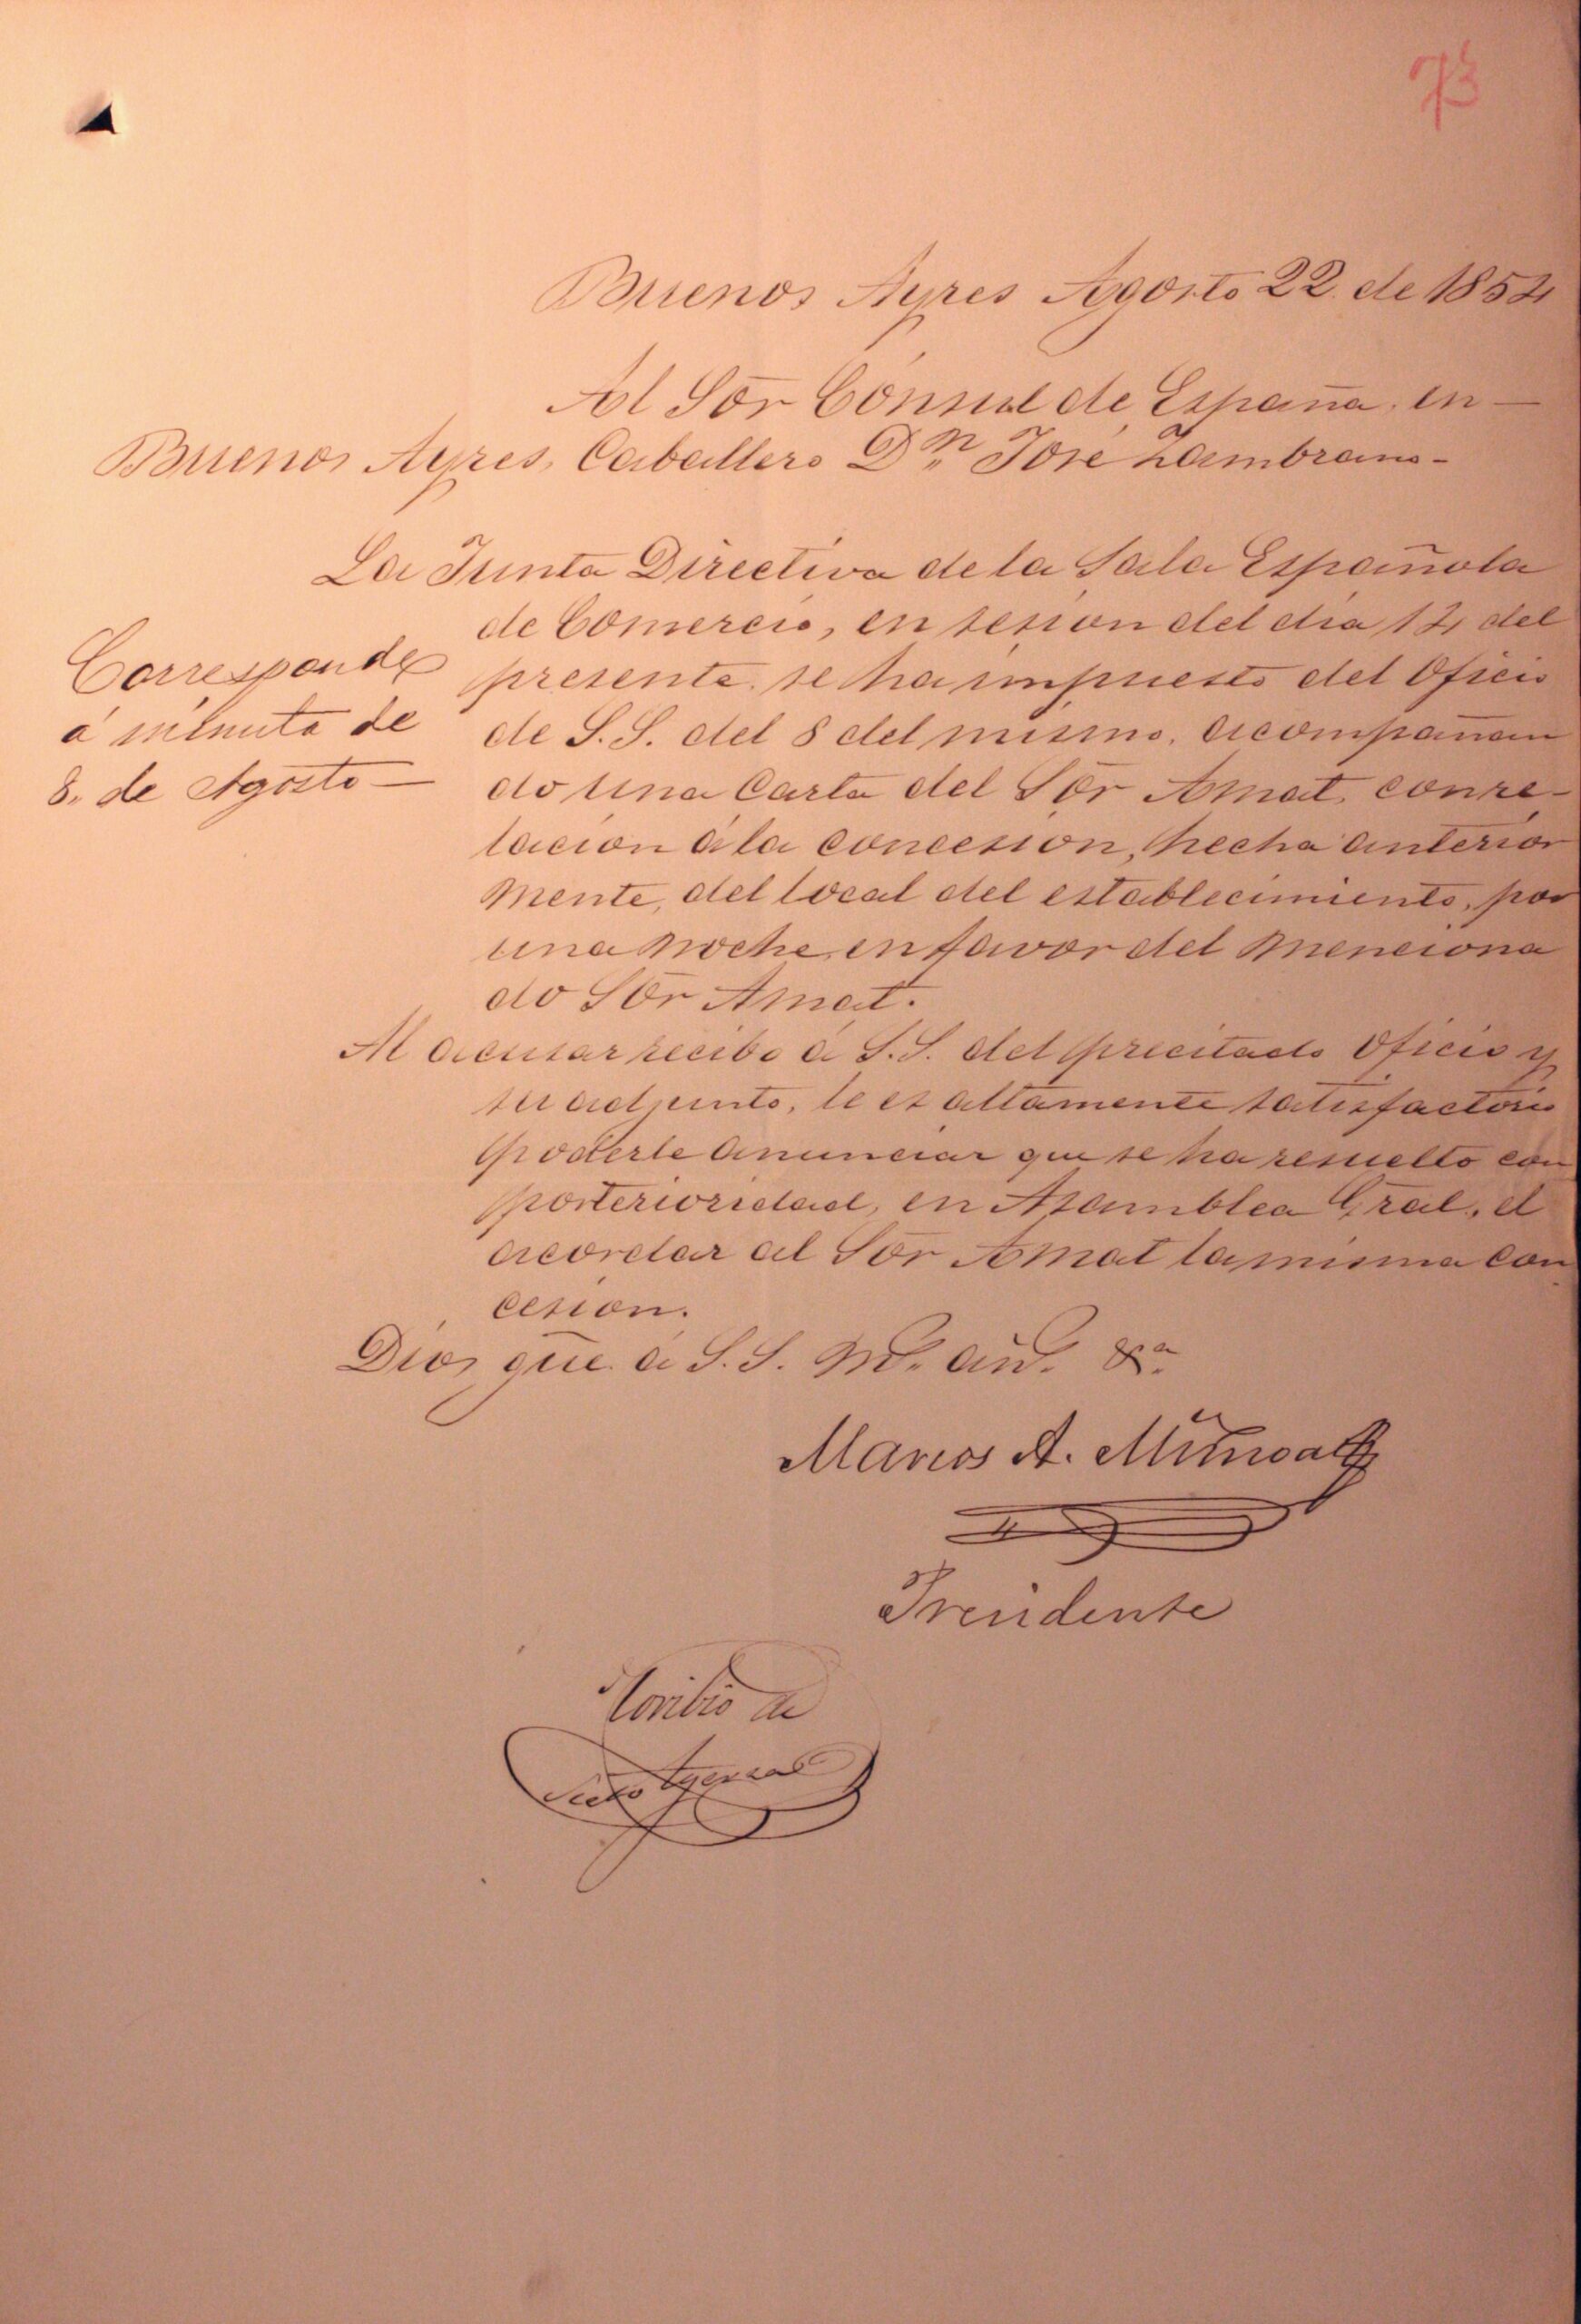 73
Buenos Ayres Agosto 22 de 1854
Al Sōr Cónsul de España, en —
Buenos Ayres, Caballero Dn José Zambrano -
La Junta Directiva de la Sala Española
de Comercio, en sesion del dia 14 del
presente se ha impuesto del Oficio
de S.S. del 8 del mismo, acompañan
do una Carta del Sōr Amat, con re-
lacion á la concesion, hecha anterior
mente, del local del establecimiento, por
una noche, en favor del menciona
do Sōr Amat.
Corresponde
á minuta de
8. de Agosto —
Al acusar recibo á S.S. del precitado Oficio y
su adjunto, le es altamente satisfactorio
poderle anunciar que se ha resuelto con
posterioridad, en Asamblea Gral, el
acordar al Sōr Amat la misma con
cesion.
Dios gūe á S.S. ms. as. &a
Marcos A. Muñoa
Presidente
Toribio de